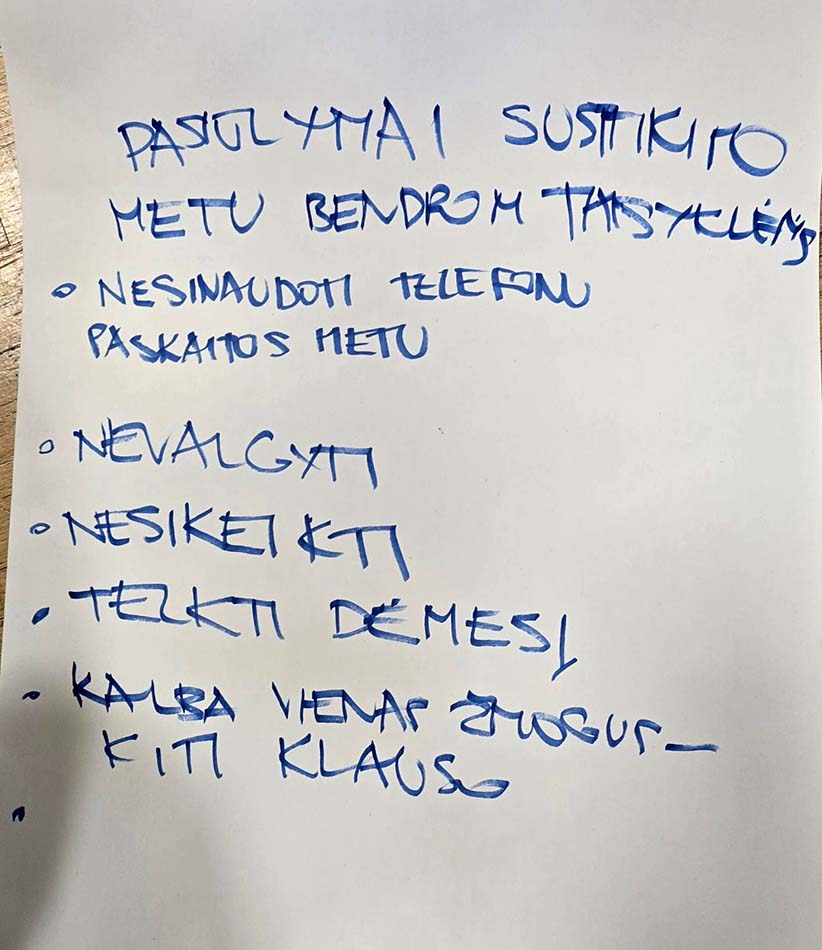 PASIŪLYMAI SUSITIKIMO
METU BENDROM TAISYKLĖMS
• NESINAUDOTI TELEFONU
PASKAITOS METU
• NEVALGYTI
• NESIKEIKTI
• TELKTI DĖMESĮ
• KALBA VIENAS ŽMOGUS –
KITI KLAUSO
•